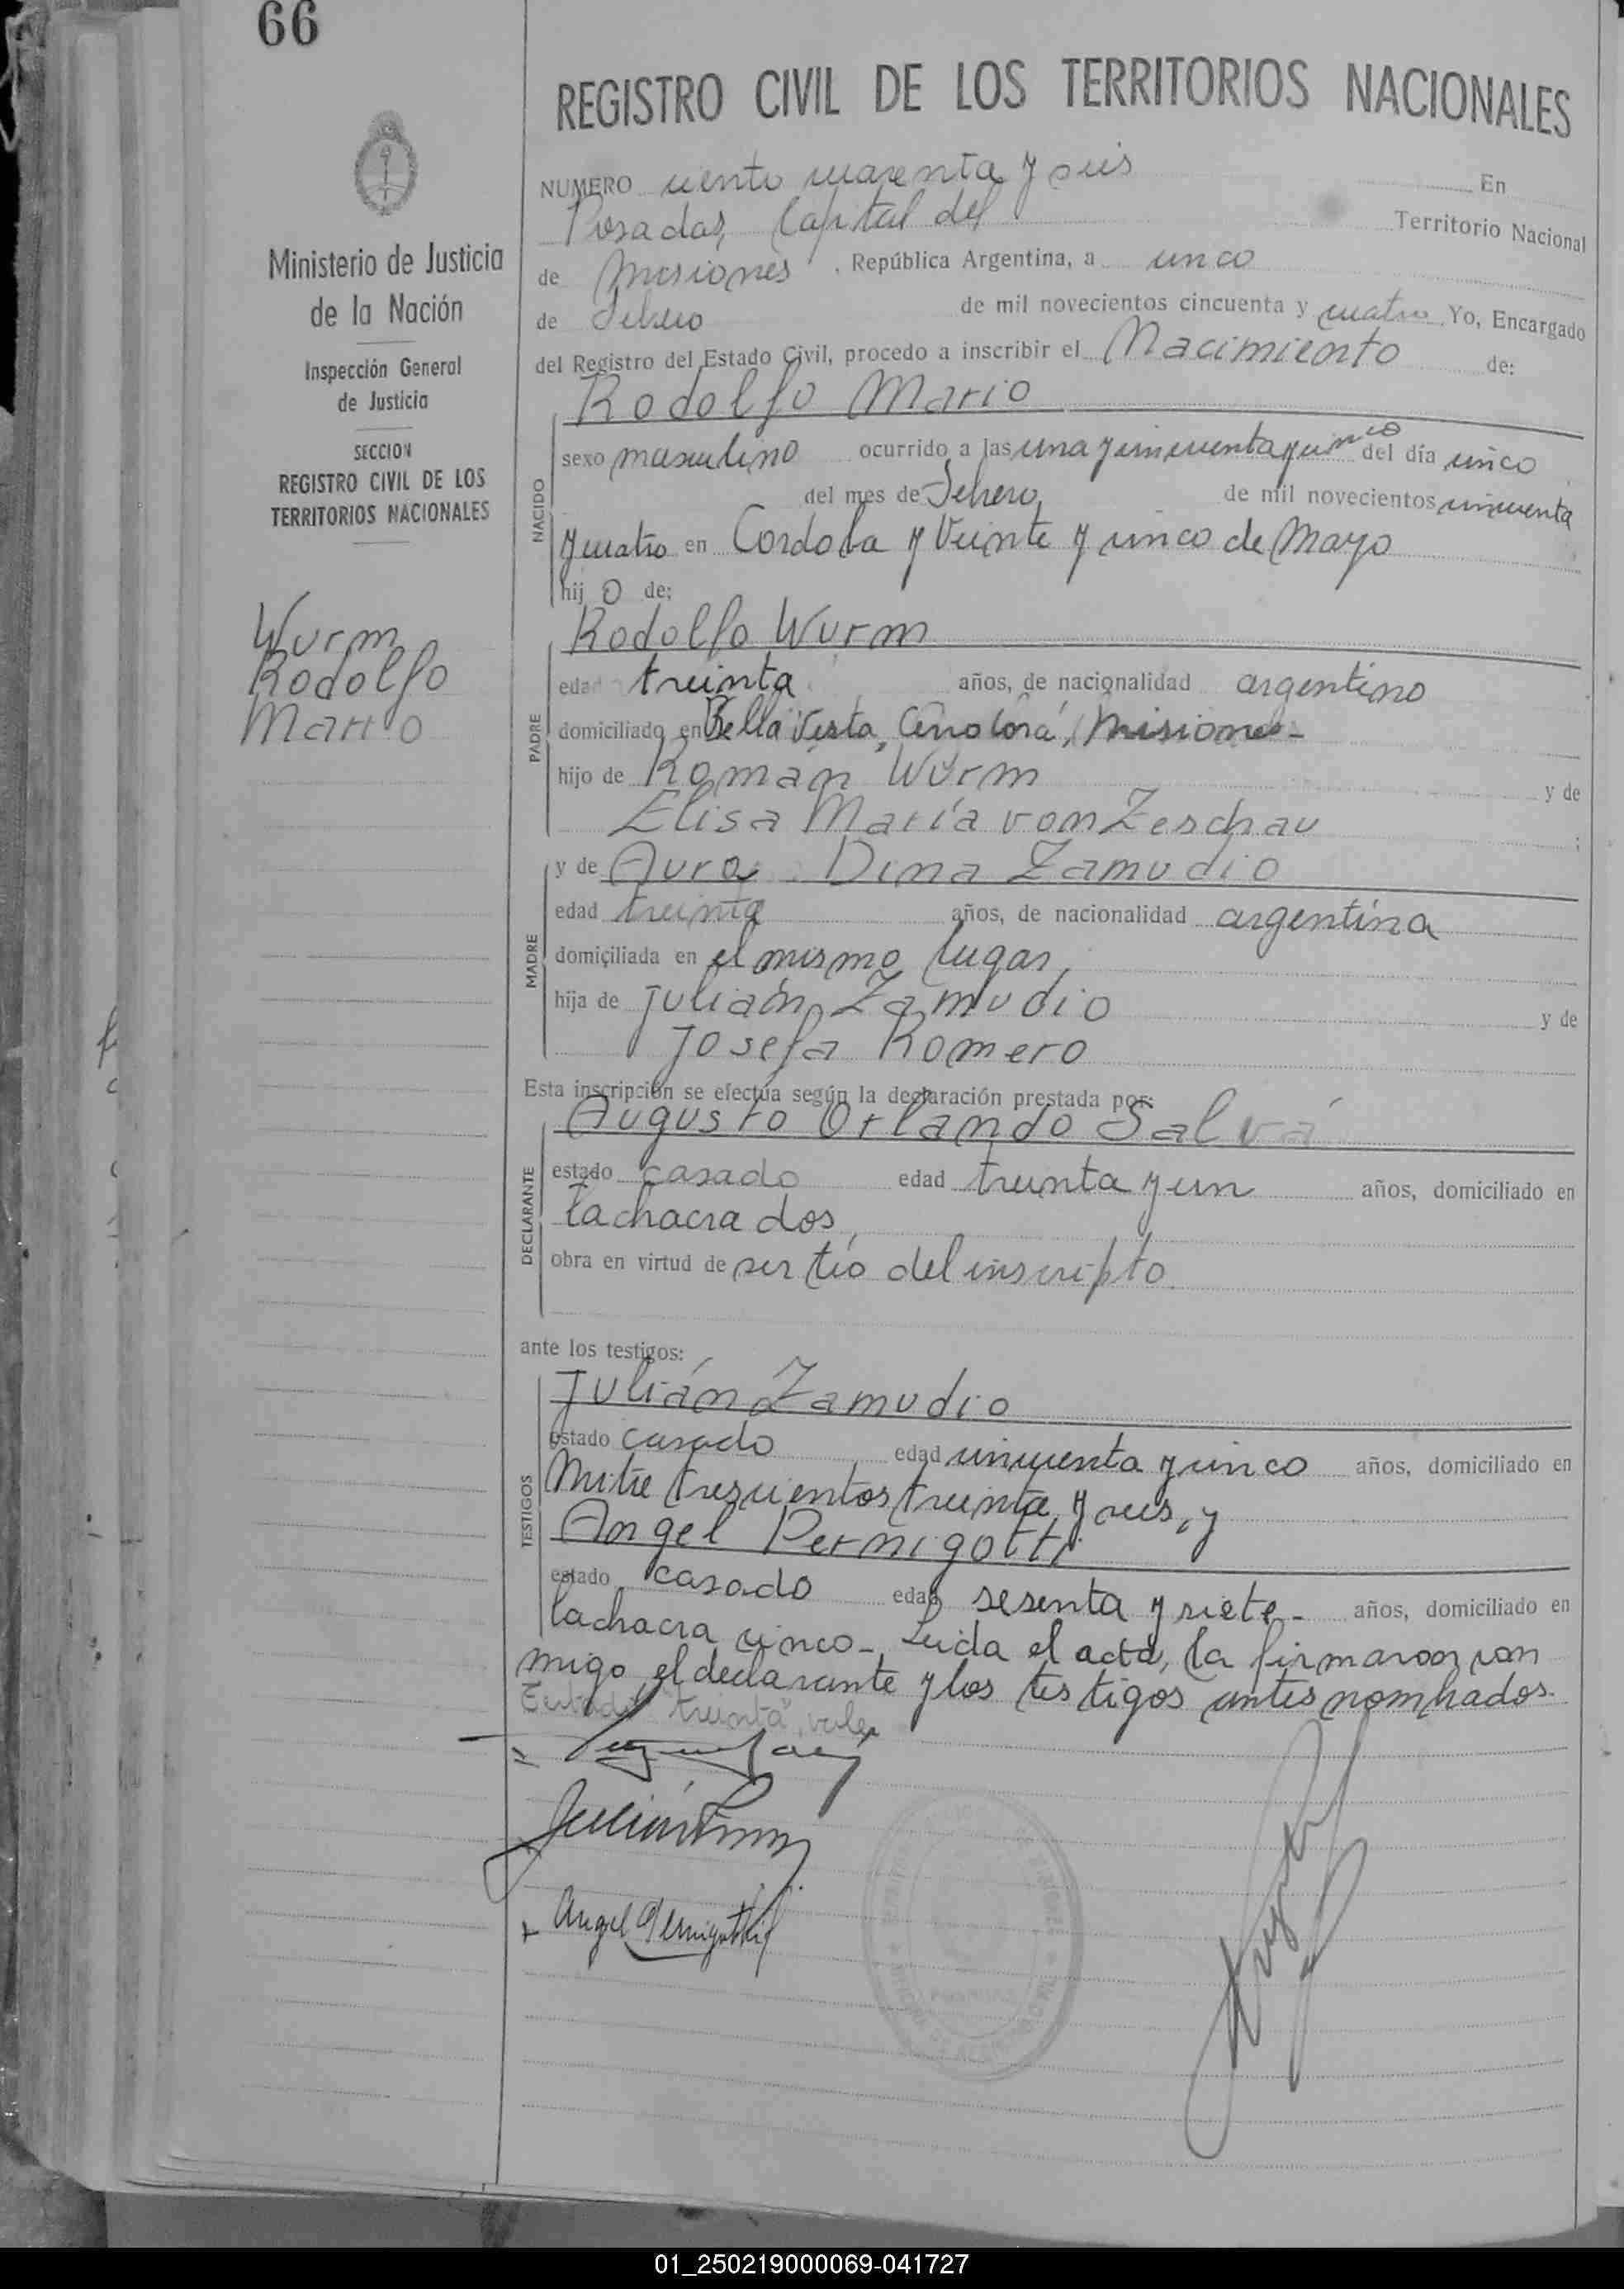 66
REGISTRO CIVIL DE LOS TERRITORIOS NACIONALES
Ministerio de Justicia
de la Nación
Inspección General
de Justicia
SECCION
REGISTRO CIVIL DE LOS
TERRITORIOS NACIONALES
Wurm
Rodolfo
Mario
NUMERO ciento cuarenta y seis En
Posadas, Capital del Territorio Nacional
de Misiones, República Argentina, a cinco
de Febrero de mil novecientos cincuenta y cuatro Yo, Encargado
del Registro del Estado Civil, procedo a inscribir el Nacimiento de:
Rodolfo Mario
NACIDO
sexo masculino ocurrido a las una y cincuenta y cinco del día cinco
del mes de Febrero, de mil novecientos cincuenta
y cuatro en Cordoba y Veinte y cinco de Mayo
hij o de:
PADRE
Rodolfo Wurm
edad treinta años, de nacionalidad argentino
domiciliado en Bella Vista, Cerro Corá, Misiones-
hijo de Román Wurm y de
Elisa María von Zeschau ;
MADRE
y de Aura Dina Zamudio
edad treinta años, de nacionalidad argentina
domiciliada en el mismo lugar,
hija de Julián Zamudio y de
Josefa Romero
Esta inscripción se efectúa según la declaración prestada por:
DECLARANTE
Augusto Orlando Salvá
estado casado edad treinta y un años, domiciliado en
la chacra dos,
obra en virtud de ser tío del inscripto
ante los testigos:
TESTIGOS
Julián Zamudio
estado casado edad cincuenta y cinco años, domiciliado en
Mitre trescientos treinta y seis, y
Angel Pernigotti
estado casado edad sesenta y siete- años, domiciliado en
la chacra cinco- Leida el acta, la firmaron con
migo, el declarante y los testigos antes nombrados.
"treinta", vale
Angel Pernigotti
01_250219000069-041727